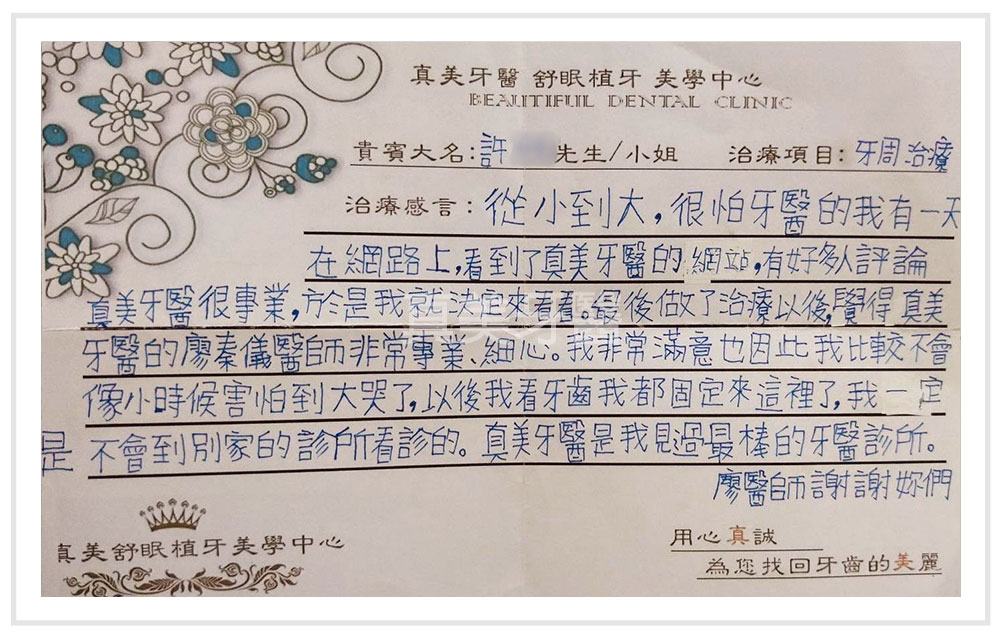 真美牙醫 舒眠植牙 美學中心
BEAUTIFUL DENTAL CLINIC
貴賓大名:許 先生/小姐 治療項目:牙周治療
治療感言:從小到大,很怕牙醫的我有一天
在網路上,看到了真美牙醫的網站,有好多人評論
真美牙醫很專業,於是我就決定來看看。最後做了治療以後,覺得真美
牙醫的廖秦儀醫師非常專業、細心。我非常滿意也因此我比較不會
像小時候害怕到大哭了,以後我看牙齒我都固定來這裡了,我一定
是不會到別家的診所看診的。真美牙醫是我見過最棒的牙醫診所。
廖醫師謝謝妳們
真美牙醫
真美舒眠植牙美學中心
用心真誠
為您找回牙齒的美麗